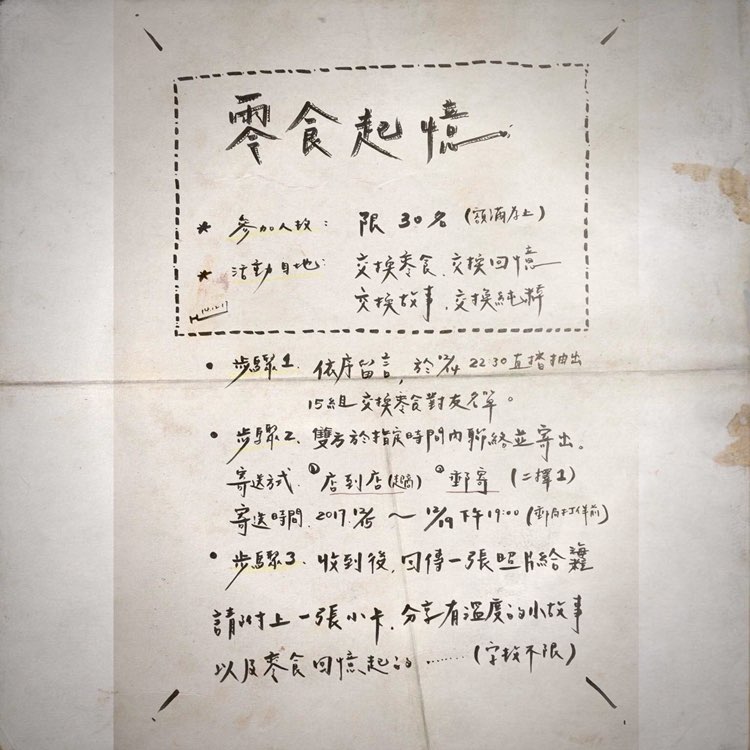 零食起憶
* 參加人數: 限 30名 (額滿為止)
* 活動目地: 交換零食、交換回憶
交換故事、交換純粹
• 步驟1. 依序留言, 於12/4 22:30直播抽出
15組 交換零食對友名單。
• 步驟2. 雙方於指定時間內聯絡並寄出。
寄送方式 ① 店到店(超商) ② 郵寄 (二擇1)
寄送時間. 2017.12/5 ~ 12/19 下午19:00 (郵局打佯前)
• 步驟3. 收到後, 回傳一張照片給
請附上一張小卡. 分享有溫度的小故事
以及零食回憶起的 ······· (字數不限)